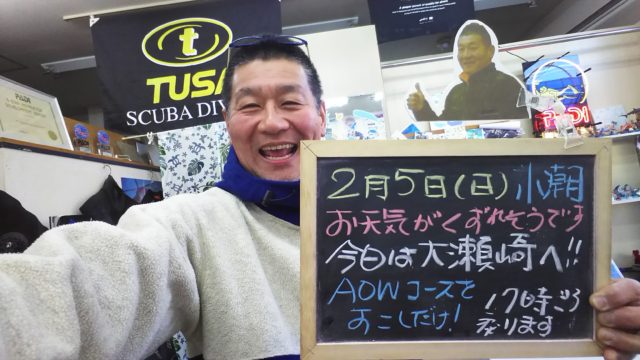 TUSA
SCUBA DIV
PADI
PADI
2月5日(日)小潮
お天気がくずれそうです
今日は大瀬崎へ!!
AOWコースを
すこしだけ!
17時ごろ
戻ります